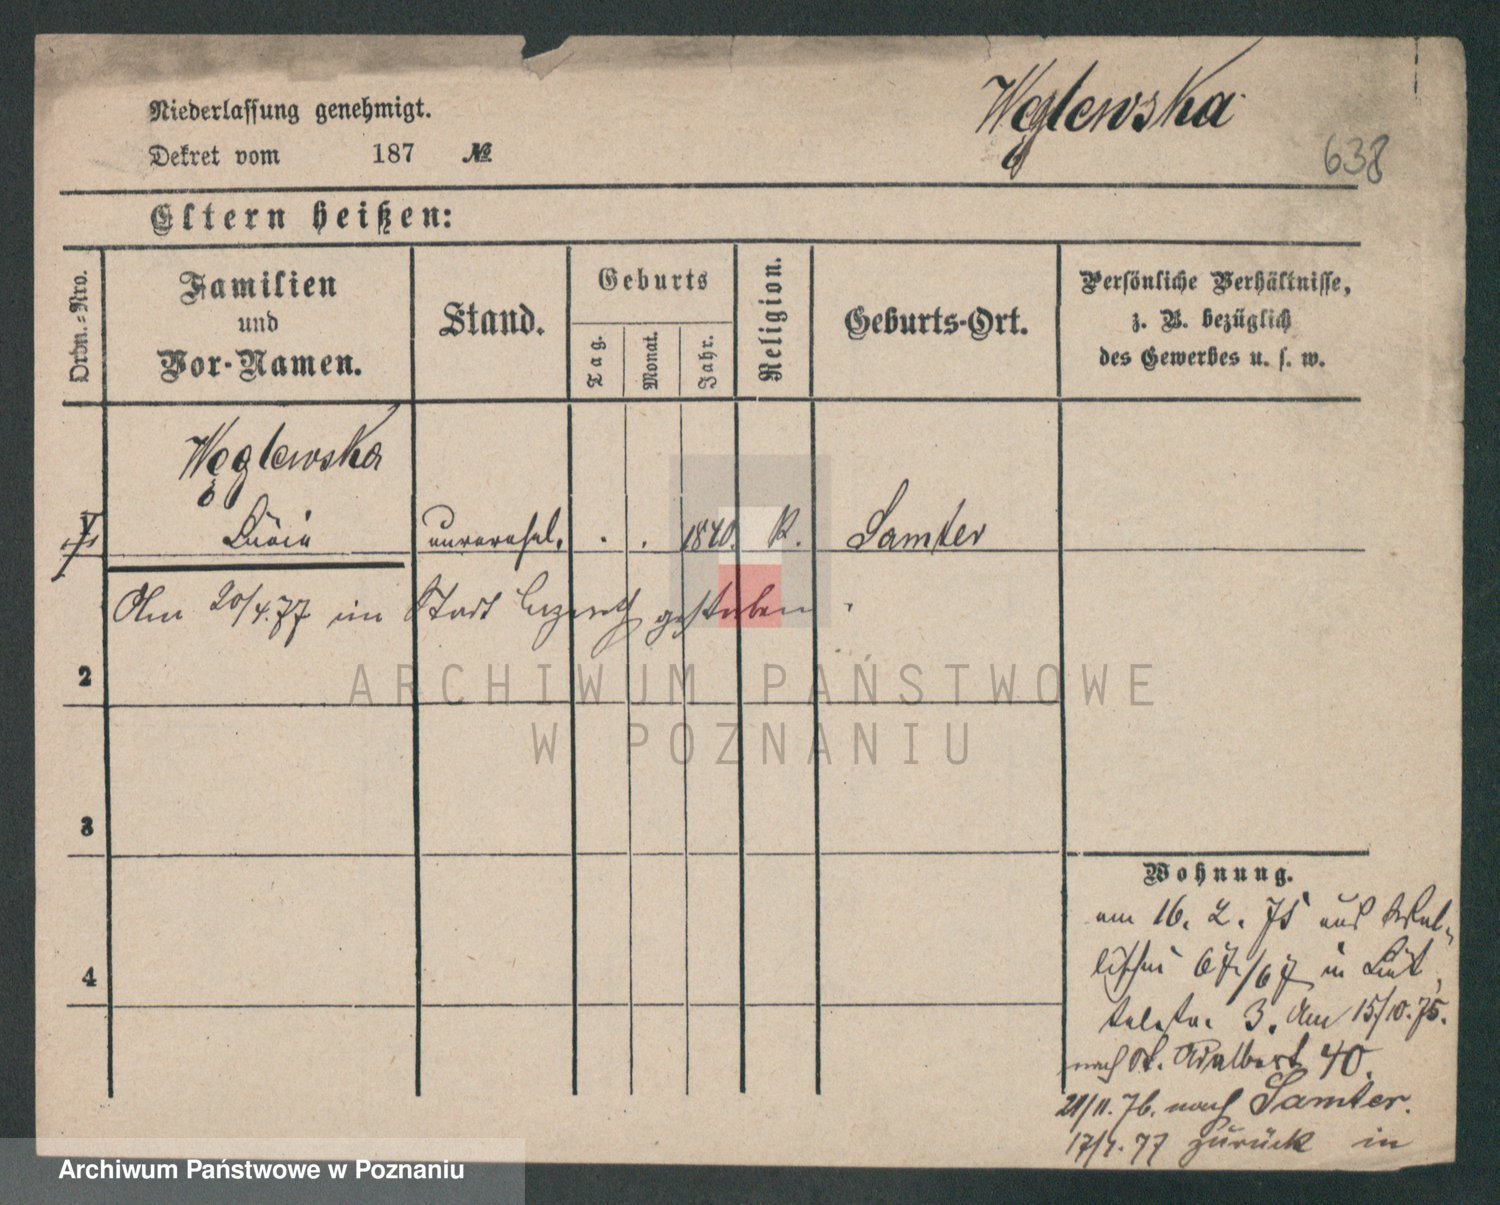 Węglewska
638
Niederlassung genehmigt.
Dekret vom 187 №
Eltern heißen:
Ordn.-Nro.
Familien
und
Vor-Namen.
Stand.
Geburts
Tag.
Monat.
Jahr.
Religion.
Geburts-Ort.
Persönliche Verhältnisse,
z. B. bezüglich
des Gewerbes u. s. w.
Węglewska
1 Lucie unverehel. . . 1840. K. Samter
Am 20/4.77 im Stadt Lazareth gestorben.
2
3
4
Wohnung.
am 16. 2. 75 aus Wal-
lischei 67/67 in
3. Am 15/10.75.
nach St. Adalbert 40.
21/11.76. nach Samter.
17/1.77 zurück in
ARCHIWUM PAŃSTWOWE
W POZNANIU
Archiwum Państwowe w Poznaniu